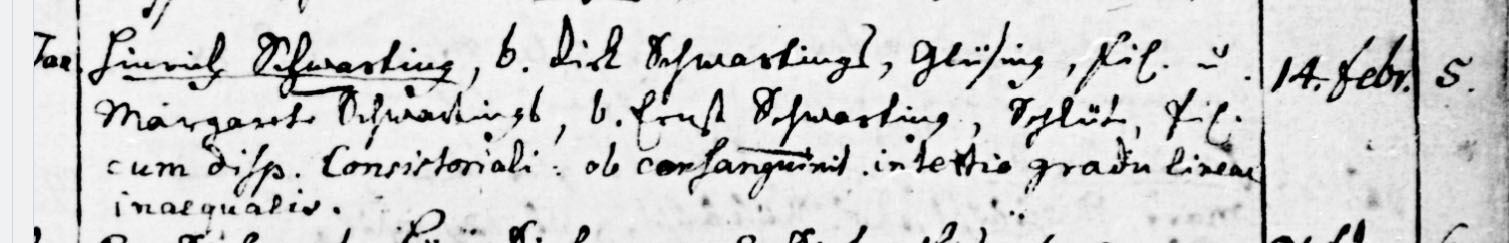 Jan. Hinrich Schwarting, b. Dirk Schwartings, Glüsing, fil. u. 14. febr. 5.
Margarete Schwartings, b. Ernst Schwarting, Schlüte, fil.
cum disp. Consistoriali: ob consanguinit. in tertio gradu lineae
inaequalis.